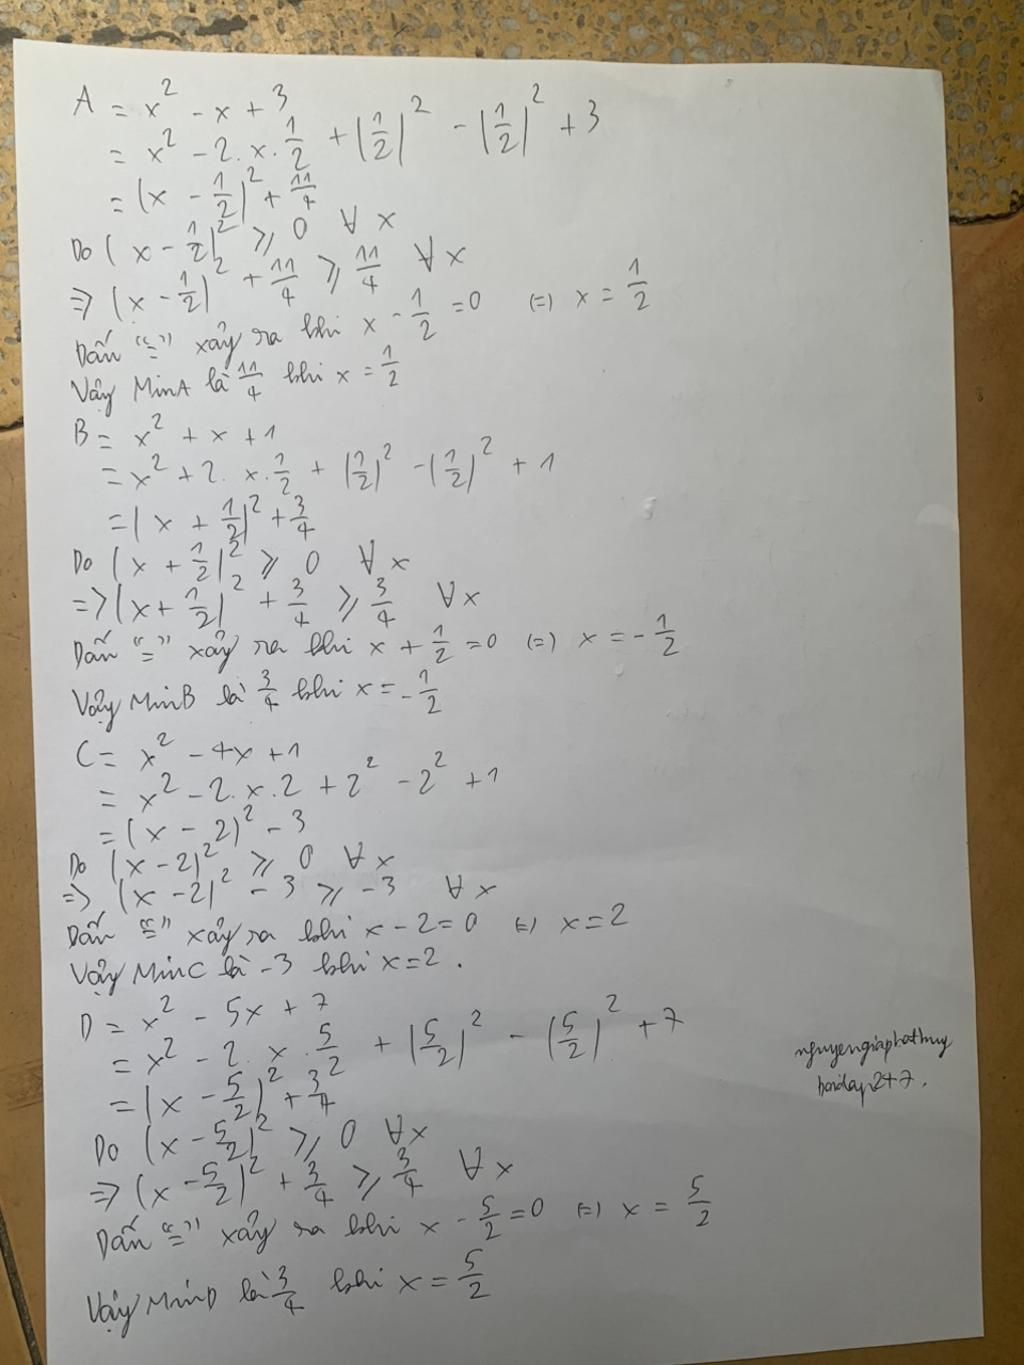 A = x² - x + 3
= x² - 2.x.1/2 + (1/2)² - (1/2)² + 3
= (x - 1/2)² + 11/4
Do (x - 1/2)² ⩾ 0 ∀ x
=> (x - 1/2)² + 11/4 ⩾ 11/4 ∀ x
Dấu "=" xảy ra khi x - 1/2 = 0 (=) x = 1/2
Vậy MinA là 11/4 khi x = 1/2
B = x² + x + 1
= x² + 2.x.1/2 + (1/2)² - (1/2)² + 1
= (x + 1/2)² + 3/4
Do (x + 1/2)² ⩾ 0 ∀ x
=> (x + 1/2)² + 3/4 ⩾ 3/4 ∀ x
Dấu "=" xảy ra khi x + 1/2 = 0 (=) x = - 1/2
Vậy MinB là 3/4 khi x = - 1/2
C = x² - 4x + 1
= x² - 2.x.2 + 2² - 2² + 1
= (x - 2)² - 3
Do (x - 2)² ⩾ 0 ∀ x
=> (x - 2)² - 3 ⩾ -3 ∀ x
Dấu "=" xảy ra khi x - 2 = 0 (=) x = 2
Vậy MinC là -3 khi x = 2.
D = x² - 5x + 7
= x² - 2.x.5/2 + (5/2)² - (5/2)² + 7
= (x - 5/2)² + 3/4
Do (x - 5/2)² ⩾ 0 ∀ x
=> (x - 5/2)² + 3/4 ⩾ 3/4 ∀ x
Dấu "=" xảy ra khi x - 5/2 = 0 (=) x = 5/2
Vậy MinD là 3/4 khi x = 5/2
nguyengiaphathuy